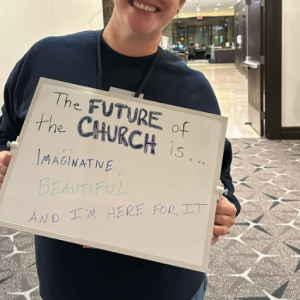 The FUTURE of
the CHURCH is...
IMAGINATIVE
BEAUTIFUL
AND I'M HERE FOR IT